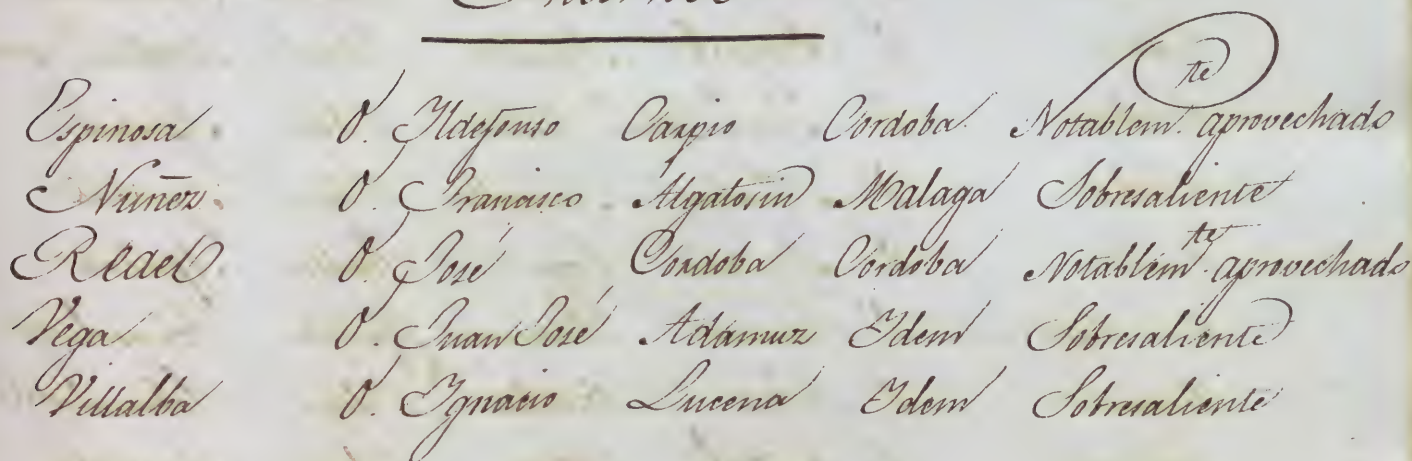 Espinosa. D. Ildefonso Carpio Cordoba. Notablem.te aprovechado
Nuñez. D. Francisco Algatosin Malaga Sobresaliente
Redel D. José Cordoba Cordoba Notablem.te aprovechado
Vega D. Juan José Adamuz Idem Sobresaliente
Villalba D. Ignacio Lucena Idem Sobresaliente